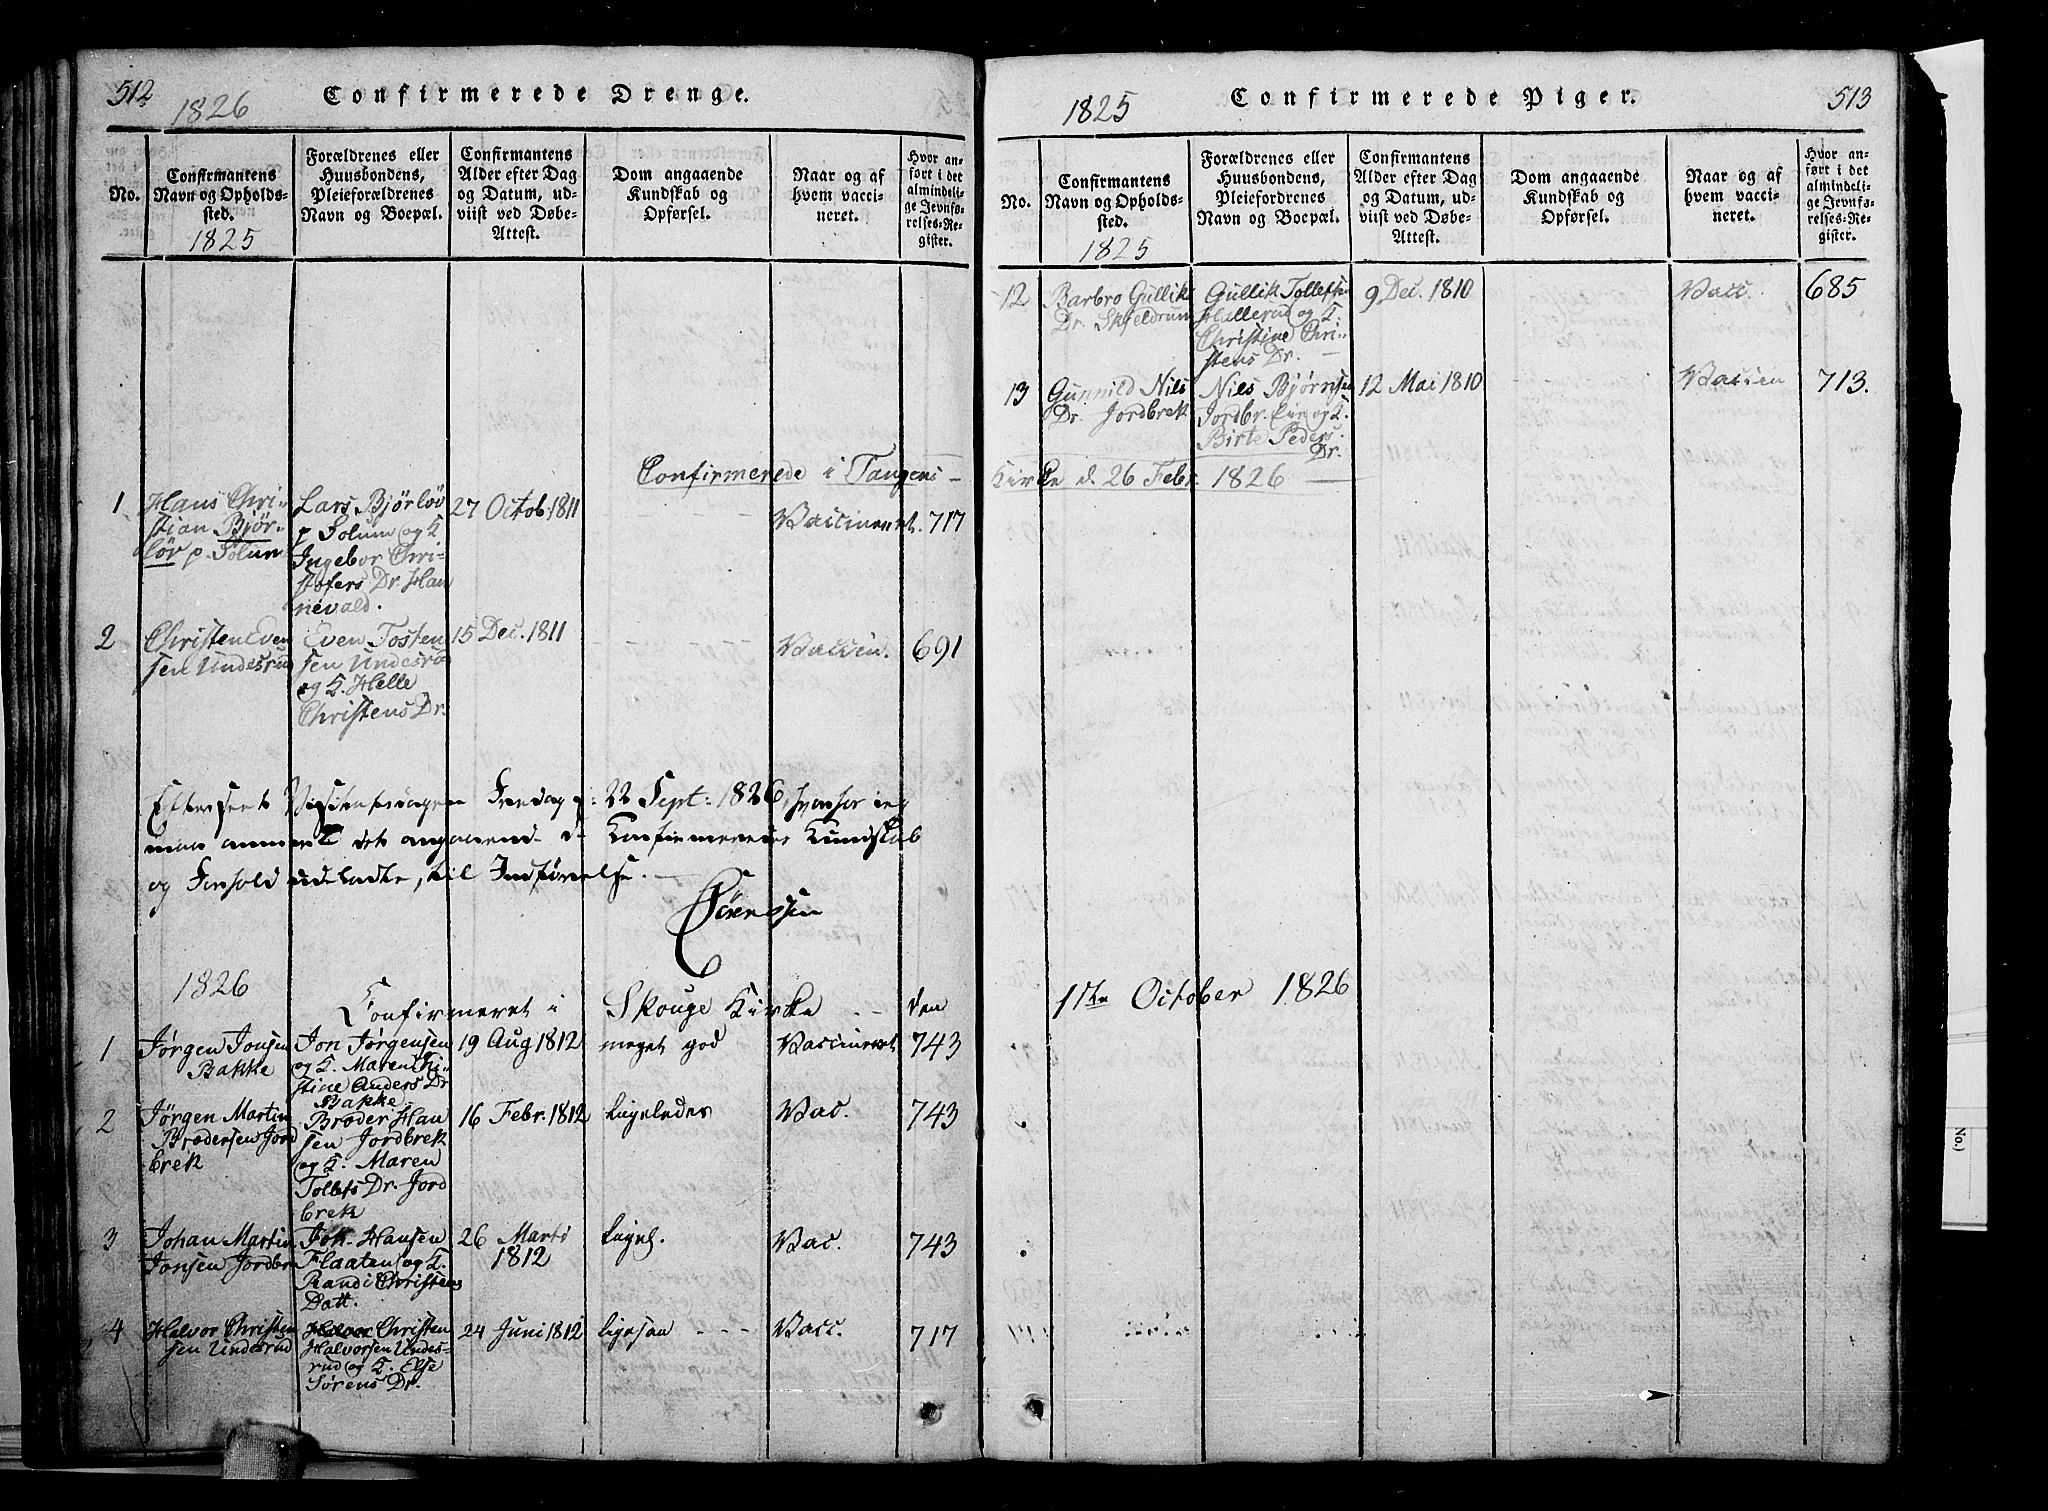 512
1826
Confirmerede Drenge.
No.
Confirmantens
Navn og Opholds-
sted.
1825
Forældrenes eller
Huusbondens,
Pleieforældrenes
Navn og Boepæl.
Confirmantens
Alder efter Dag
og Datum, ud-
viist ved Døbe-
Attest.
Dom angaaende
Kundskab og
Opførsel.
Naar og af
hvem vacci-
neret.
Hvor an-
ført i det
almindeli-
ge Jevnfø-
relses-Re-
gister.
Confirmerede i Tangens-
1
Hans Chri-
stian Bjør-
løv p. Solum
Lars Bjørløv
p Solum og K
Ingebor Chri-
stofers Dr. Han
nevald.
27 Octob. 1811
Vaccineret.
717
2
Christen Even
sen Undesrud
Even Tosten
sen Undesru
og K. Helle
Christens Dr.
15 Dec. 1811
Vaccin.
691
Efterseet Visitatsdagen Fredag d: 22 Sept: 1826, hvorfor jeg
maa anmærke det angaaende de Confirmeredes Kundskab
og Forhold udeladte, til Indførelse.
Sørenssen
1826
Confirmeret i Skouge Kirke den
1
Jørgen Jonsen
Bakke
Jon Jørgensen
og K. Maren Ki-
stine Anders Dr
Bakke
19 Aug 1812
meget god
Vaccineret
743
2
Jørgen Martin
Brødersen Jord
brek
Brøder Han
sen Jordbrek
og K. Maren
Tollefs Dr. Jord
brek
16 Febr. 1812
ligeledes
Vac.
743
3
Johan Martin
Jonsen Jordbr
Joh. Hansen
Flaaten og K.
Randi Christens
Datt.
26 Marts
1812
ligel.
Vac.
743
4
Halvor Christen
sen Undesrud
Halvor Christen
Halvorsen Undes-
rud og K. Else
Sørens Dr.
24 Juni 1812
ligesaa
Vacc.
717
1825
Confirmerede Piger.
513
No.
Confirmantens
Navn og Opholds-
sted.
1825
Forældrenes eller
Huusbondens,
Pleiefordrenes
Navn og Boepæl.
Confirmantens
Alder efter Dag
og Datum, ud-
viist ved Døbe-
Attest.
Dom angaaende
Kundskab og
Opførsel.
Naar og af
hvem vacci-
neret.
Hvor an-
ført i det
almindeli-
ge Jevnfø-
relses-Re-
gister.
12
Barbro Gulliks
Dr. Skjeldrum
Gullik Tollefsen
Hallerud og K.
Christine Chri-
stens Dr.
9 Dec. 1810
Vacc.
685
13
Gunnild Nils
Dr. Jordbrek
Nils Bjørnsen
Jordbr. Eie og K.
Birte Peders
Dr.
12 Mai 1810
Vaccin
713.
Kirke d. 26 Febr. 1826
1ste October 1826
No.)